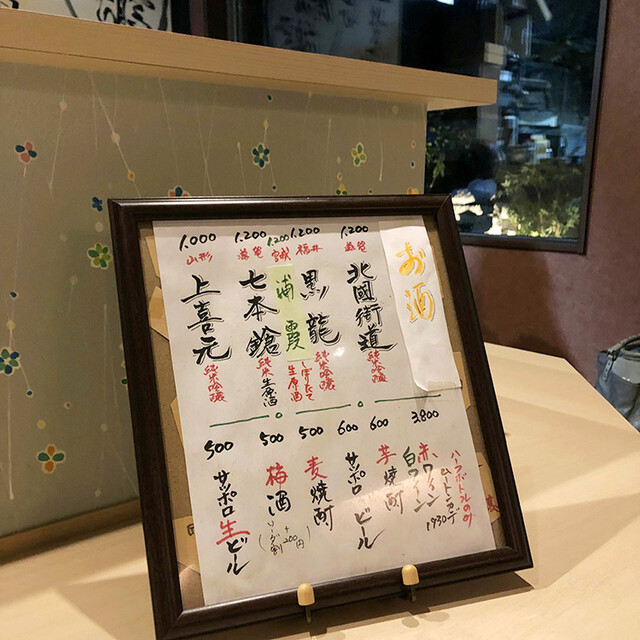 お酒
1.200
滋賀
北國街道
純米吟醸
1.200
福井
黒龍
純米吟醸
1.200
宮城
浦霞
しぼりたて
生原酒
1.200
滋賀
七本鎗
純米生原酒
1.000
山形
上喜元
純米吟醸
3.800
ハーフボトルのみ
ムートン・カデ
1930
赤ワイン
白ワイン
600
芋焼酎
600
サッポロビール
500
麦焼酎
500
梅酒
(ソーダ割 +200円)
500
サッポロ生ビール